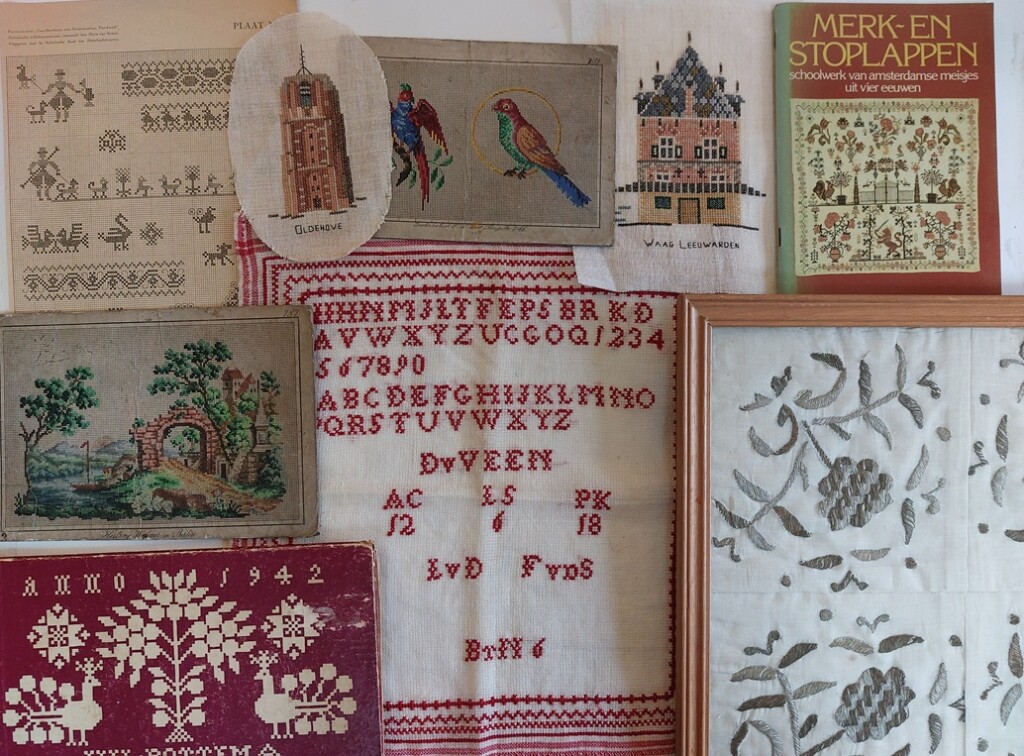 PLAAT
OLDEHOVE
WAAG LEEUWARDEN
MERK- EN
STOPLAPPEN
schoolwerk van amsterdamse meisjes
uit vier eeuwen
HNMJLTFEPS BR KD
AVWXYZUCGOQ1234
567890
ABCDEFGHIJKLMNO
PQRSTUVWXYZ
DvVEEN
AC LS PK
12 6 18
LvD FvDS
BTFN 6
ANNO 1942